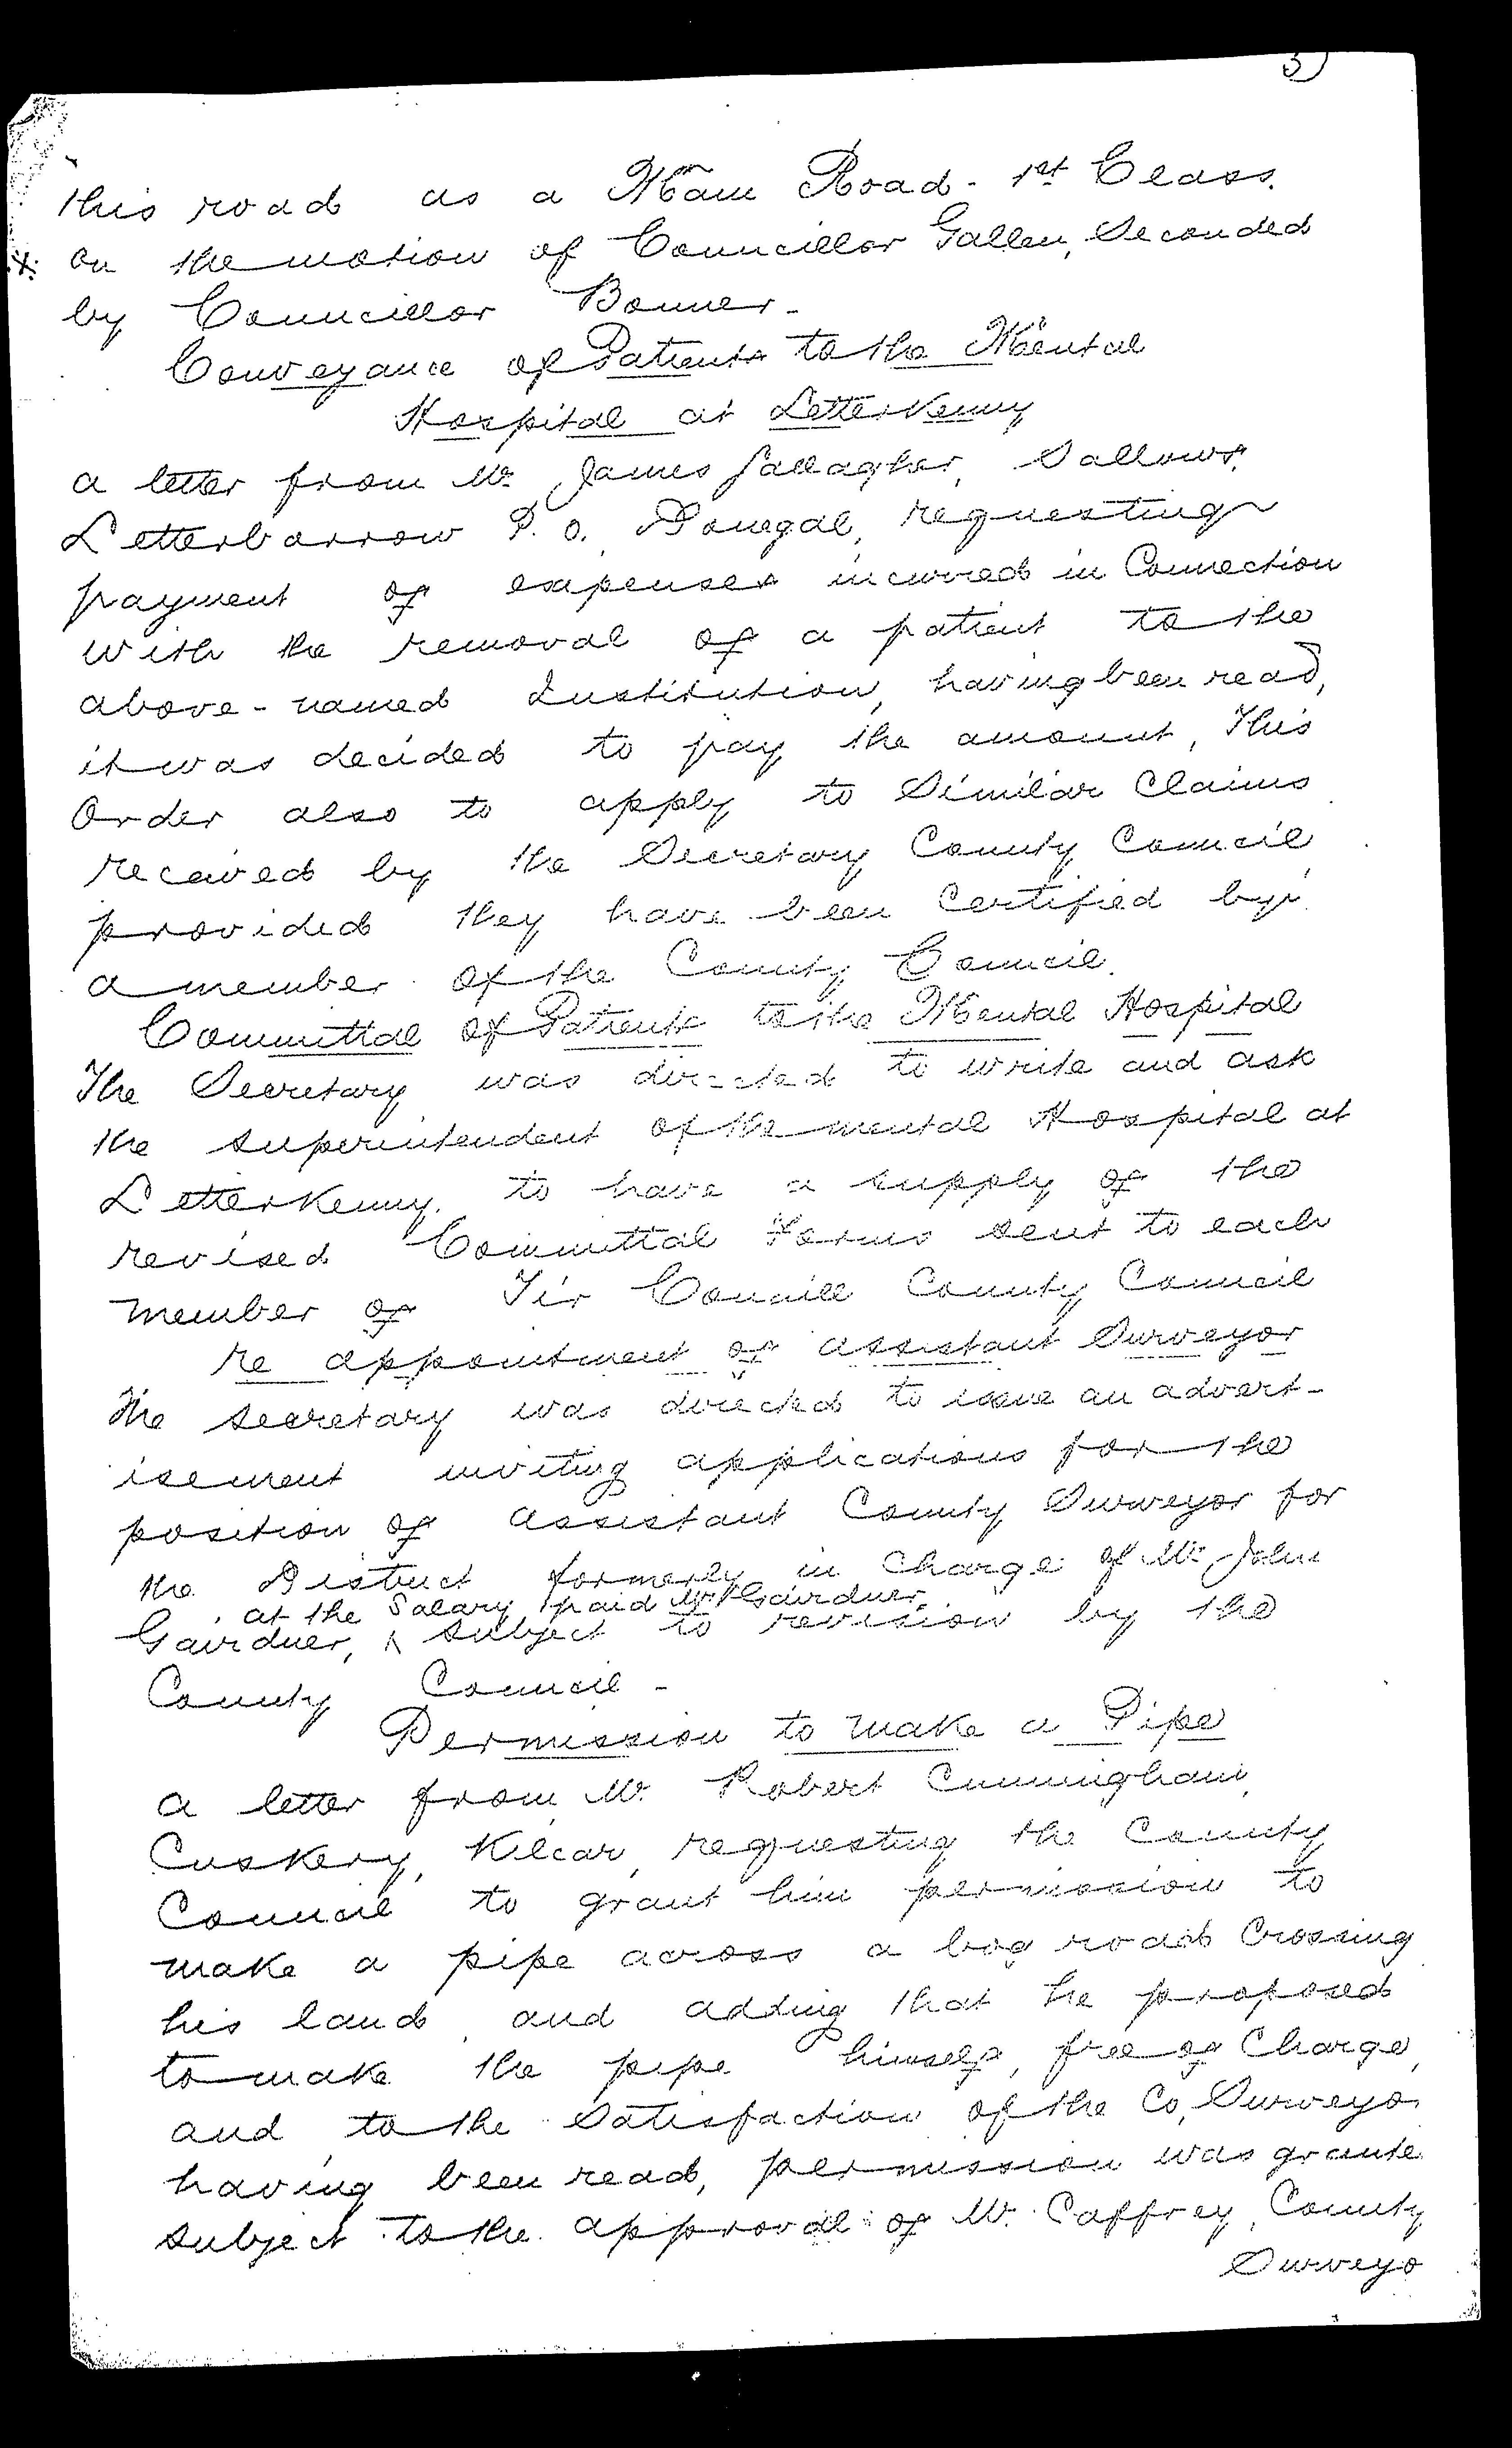 5)
this road as a Main Road - 1st Class.
* on the motion of Councillor Gallen, Seconded
by Councillor Bonner -
Conveyance of Patients to the Mental
Hospital at Letterkenny
a letter from Mr. James Gallagher, Sallows,
Letterbarrow P. O. Donegal, requesting
payment of expenses incurred in Connection
with the removal of a patient to the
above-named Institution, having been read,
it was decided to pay the amount, This
Order also to apply to Similar Claims
received by the Secretary County Council
provided they have been Certified by
a member of the County Council.
Committal of Patients to the Mental Hospital
The Secretary was directed to write and ask
the superintendent of the mental Hospital at
Letterkenny. to have a supply of the
revised Committal Forms sent to each
member of Tir Conaill County Council
re appointment of assistant Surveyor
The secretary was directed to issue an advert-
isement inviting applications for the
position of assistant County Surveyor for
the District formerly in Charge of Mr. John
at the Salary paid Mr. Gairdner,
Gairdner, ^ subject to revision by the
County Council -
Permission to make a Pipe
a letter from Mr. Robert Cunningham,
Cuskery, Kilcar, requesting the County
Council to grant him permission to
make a pipe across a bog road Crossing
his land, and adding that he proposed
to make the pipe himself, free of Charge,
and to the Satisfaction of the Co, Surveyo
having been read, permission was grante
subject to the approval of Mr. Caffrey, County
Surveyo